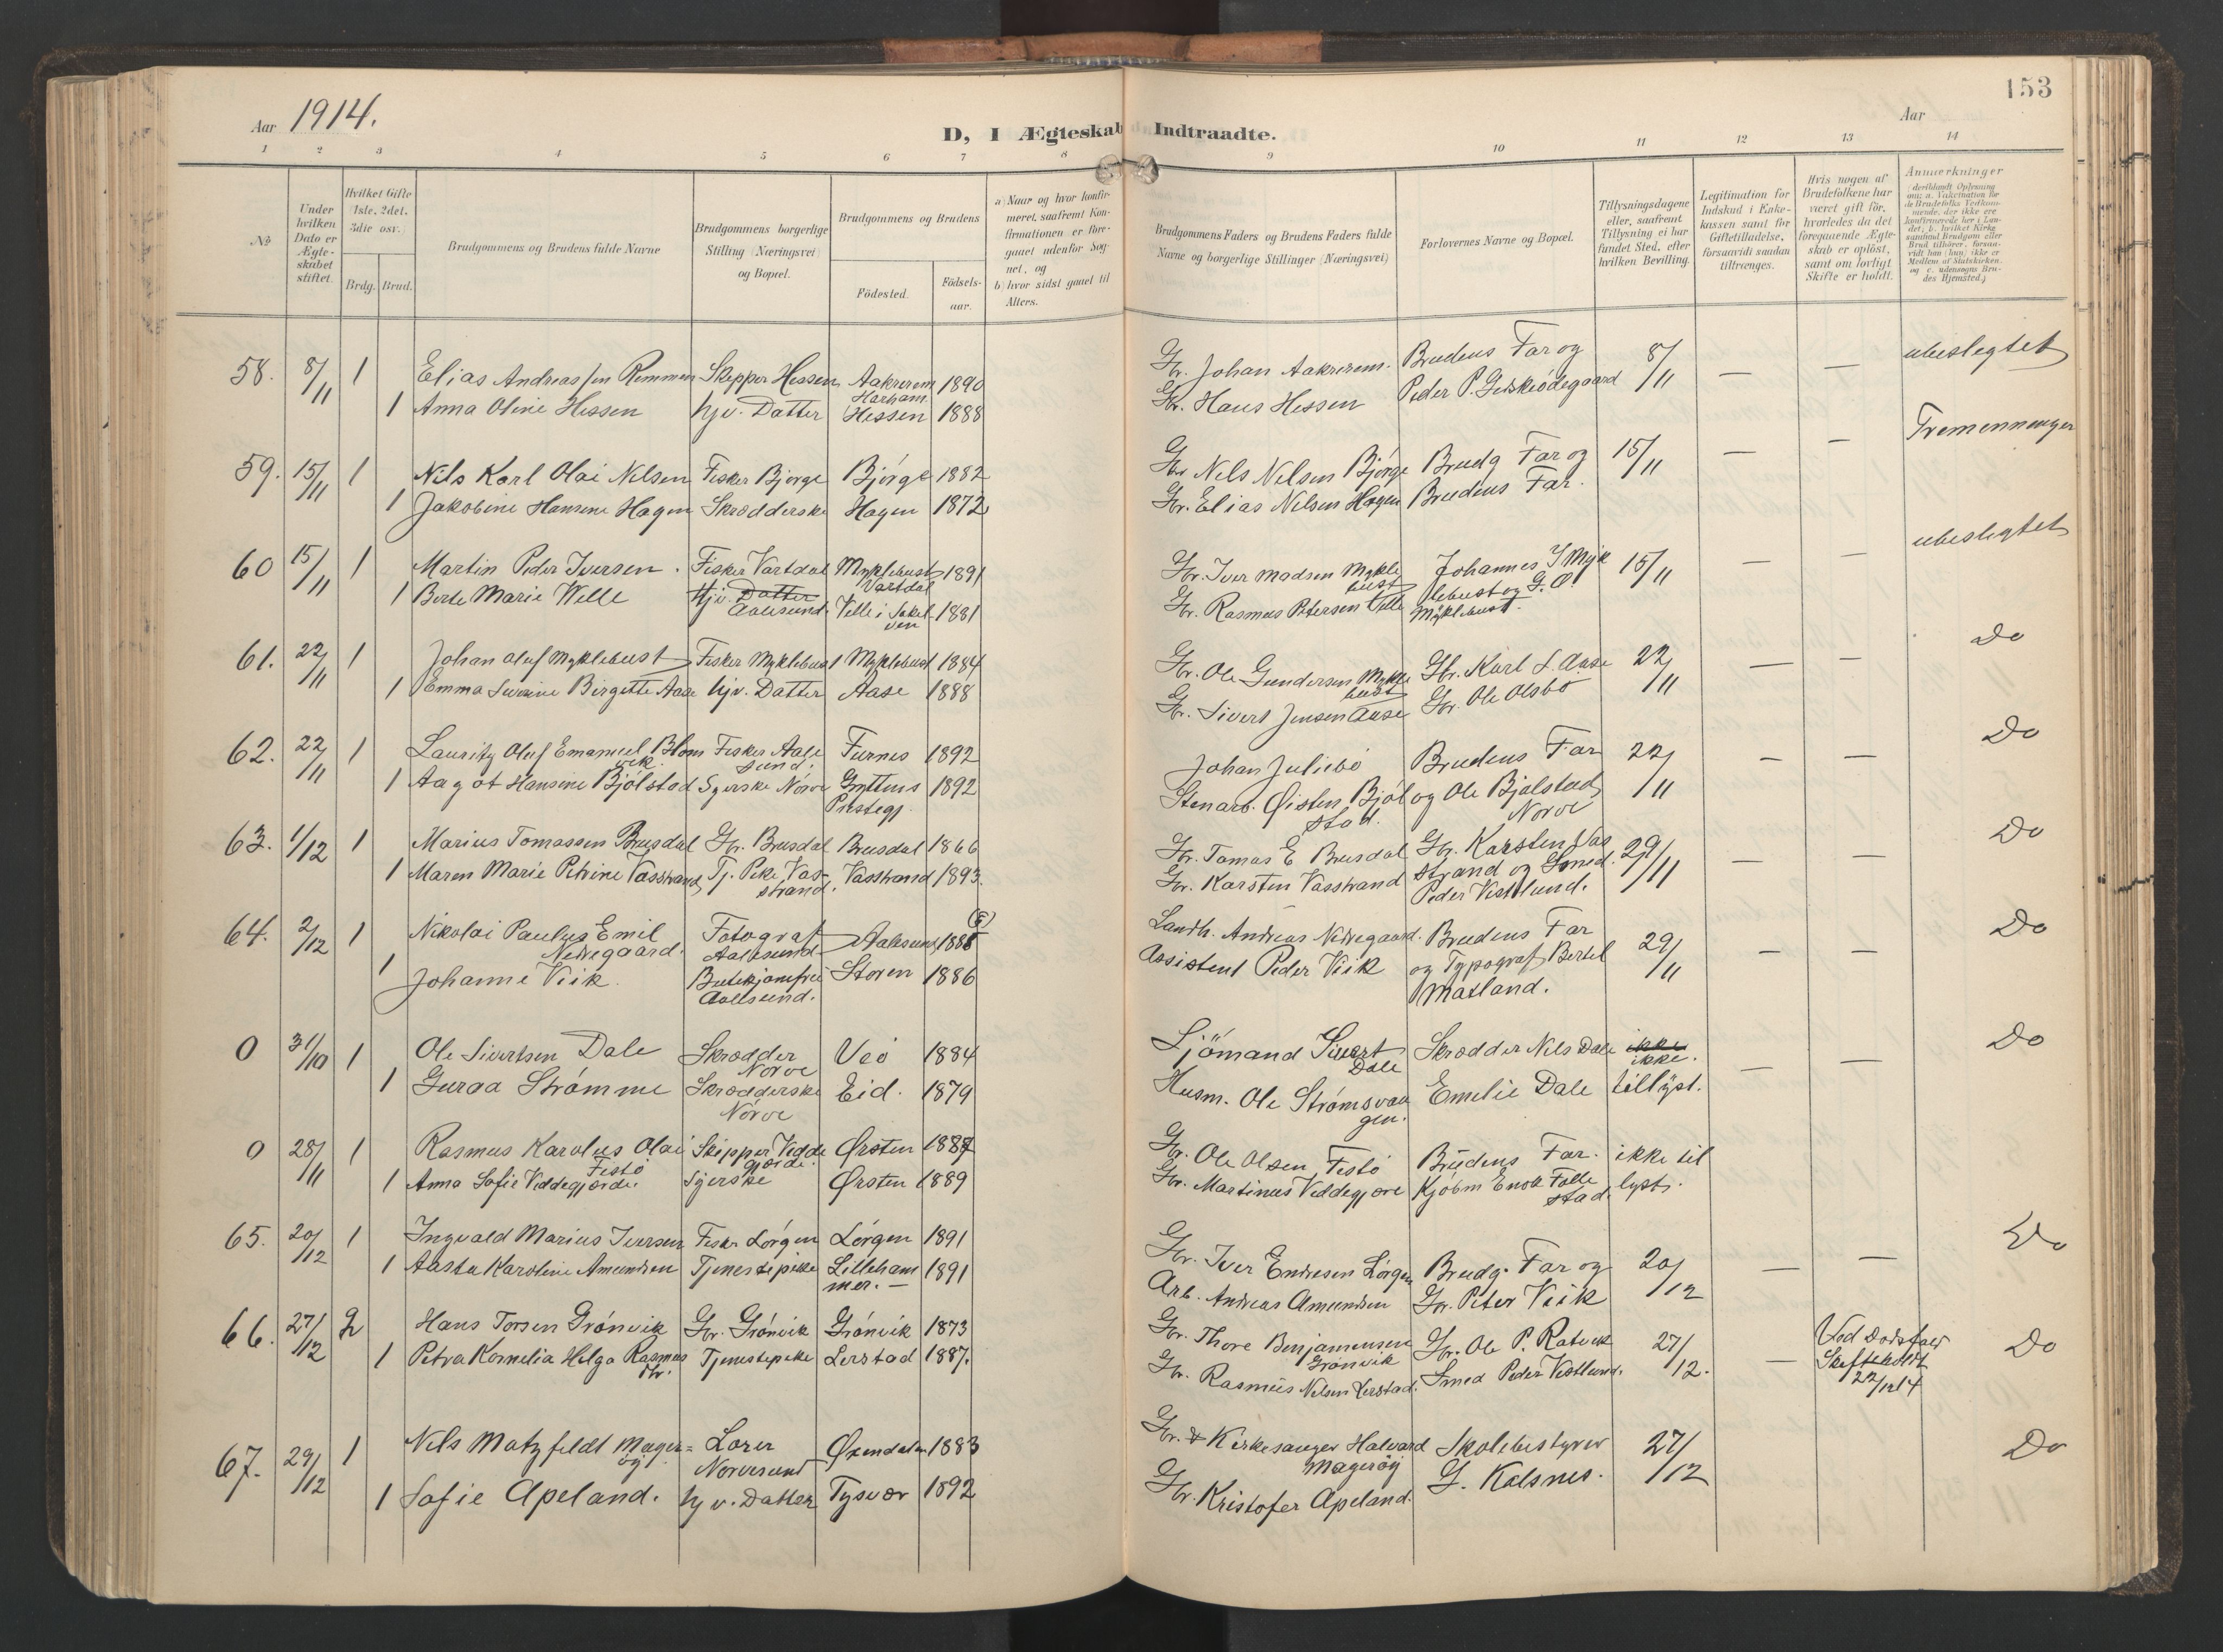 153
Aar 1914.
D, I Ægteskab Indtraadte.
Aar
1 2 3 4 5 6 7 8 9 10 11 12 13 14
No
Under hvilken Dato er Ægteskabet stiftet.
Hvilket Gifte (1ste, 2det, 3die osv.)
Brdg. Brud.
Brudgommens og Brudens fulde Navne
Brudgommens borgerlige Stilling (Næringsvei) og Bopæl.
Brudgommens og Brudens
Födested.
Födselsaar.
a) Naar og hvor konfirmeret, saafremt Konfirmationen er foregaaet udenfor Sognet, og
b) hvor sidst gaaet til Alters.
Brudgommens Faders og Brudens Faders fulde Navne og borgerlige Stillinger (Næringsvei)
Forlovernes Navne og Bopæl.
Tillysningsdagene eller, saafremt Tillysning ei har fundet Sted, efter hvilken Bevilling.
Legitimation for Indskud i Enkekassen samt for Giftetilladelse, forsaavidt saadan tiltrænges.
Hvis nogen af Brudefolkene har været gift för, hvorledes da det foregaaende Ægteskab er oplöst, samt om lovligt Skifte er holdt.
Anmerkninger
58. 8/11 1 Elias Andreassen Remmen Skipper Hessen Aakrerem Harham. 1890 Gbr. Johan Aakrerem. Brudens Far og 8/11 — — ubeslegtet
1 Anna Oline Hessen hjv. Datter Hessen 1888 Gbr. Hans Hessen Peder P. Giskeödegaard
59. 15/11 1 Nils Karl Olai Nilsen Fisker Bjørge Bjørge 1882 Gbr Nils Nilsen Bjørge Brudg Far og 15/11 — — Tremenninger
1 Jakobine Hansine Hagen Skrædderske Hagen 1872 Gbr. Elias Nilsen Hagen Brudens Far.
60 15/11 1 Martin Peder Iversen. Fisker Vartdal Myklebust Vartdal 1891 Gbr. Iver Madsen Myklebust Johannes I Myk 15/11 — — ubeslegtet
1 Berte Marie Welle Hjv. Datter Aalesund. Velle i Søkelven 1881 Gbr. Rasmus Petersen Velle lebust og G. O. Myklebust.
61. 22/11 1 Johan Oluf Myklebust Fisker Myklebust Myklebust 1884 Gbr. Ole Gundersen Myklebust Gbr. Karl S. Aase 22/11 — — Do
1 Emma Severine Birgitte Aase hjv. Datter Aase 1888 Gbr. Sivert Jensen Aase Gbr. Ole Olsbö
62. 22/11 1 Lauritz Oluf Emanuel Blomvik. Fisker Aalesund. Furnes 1892 Johan Juliebö Brudens Far 22/11 — — Do
1 Aagot Hansine Bjölstad Syerske Nörve Gryttens Prestegj. 1892 Stenarb. Øisten Bjölstad. og Ole Bjölstad Nörve
63. 1/12 1 Marius Tomassen Brusdal Gbr. Brusdal Brusdal 1866 Gbr. Tomas E Brusdal Gbr. Karsten Vas 29/11 — — Do
1 Maren Marie Petrine Vasstrand Tj. Pike Vasstrand. Vasstrand 1893. Gbr. Karsten Vasstrand strand og Smed. Peder Vestlund.
64. 2/12 1 Nikolai Paulus Emil Nedregaard. Fotograf Aalesund Aalesund 1885 Landh. Andreas Nedregaard. Brudens Far 29/11 — — Do
1 Johanne Viik. Butikjomfru Aalesund. Storen 1886 Assistent Peder Viik og Typograf Bertel Matland.
0 31/10 1 Ole Sivertsen Dale Skrædder Nörve Veö 1884 Sjömand Sivert Dale Skrædder Nils Dale ikke ikke. — — Do
1 Guroa Strömme Skrædderske Nörve Eid. 1879 Husm. Ole Strömsvaagen. Emelie Dale tillyst.
0 28/11 1 Rasmus Karolus Olai Festö Skipper Vedde gjærde. Ørsten 1888 Gbr. Ole Olsen Festö Brudens Far. ikke til
1 Anna Sofie Veddegjærde. Syerske Ørsten 1889 Gbr. Martinus Veddegjære Kjöbm Enok Follestad lyst.
65. 20/12 1 Ingvald Marius Iversen Fisker Lörgen Lörgen 1891 Gbr. Iver Endresen Lörgen Brudg. Far og 20/12 — — Do
1 Aasta Karoline Amundsen Tjenestepike Lillehammer. — 1891 Arb. Andreas Amundsen Gbr. Peter Viik
66. 27/12 2 Hans Torsen Grönvik Gbr. Grönvik Grönvik 1873 Gbr. Thore Benjaminsen Grönvik Gbr. Ole P. Ratvik 27/12. — Ved Dødsfald Skifteholdt 22/12 14 Do
1 Petra Kornelia Helga Rasmusdtr. Tjenestepike Lerstad 1887. Gbr. Rasmus Nilsen Lerstad. Smed Peder Vestlund.
67. 29/12 1 Nils Motzfeldt Mageröy Lærer Nörvesund Øxendalen 1883 Gbr. & Kirkesanger Halvard Magerøy Skolebestyrer 27/12 Do
1 Sofie Apeland. hjv. Datter Tysvær 1892 Gbr. Kristofer Apeland. G. Kalsnes.